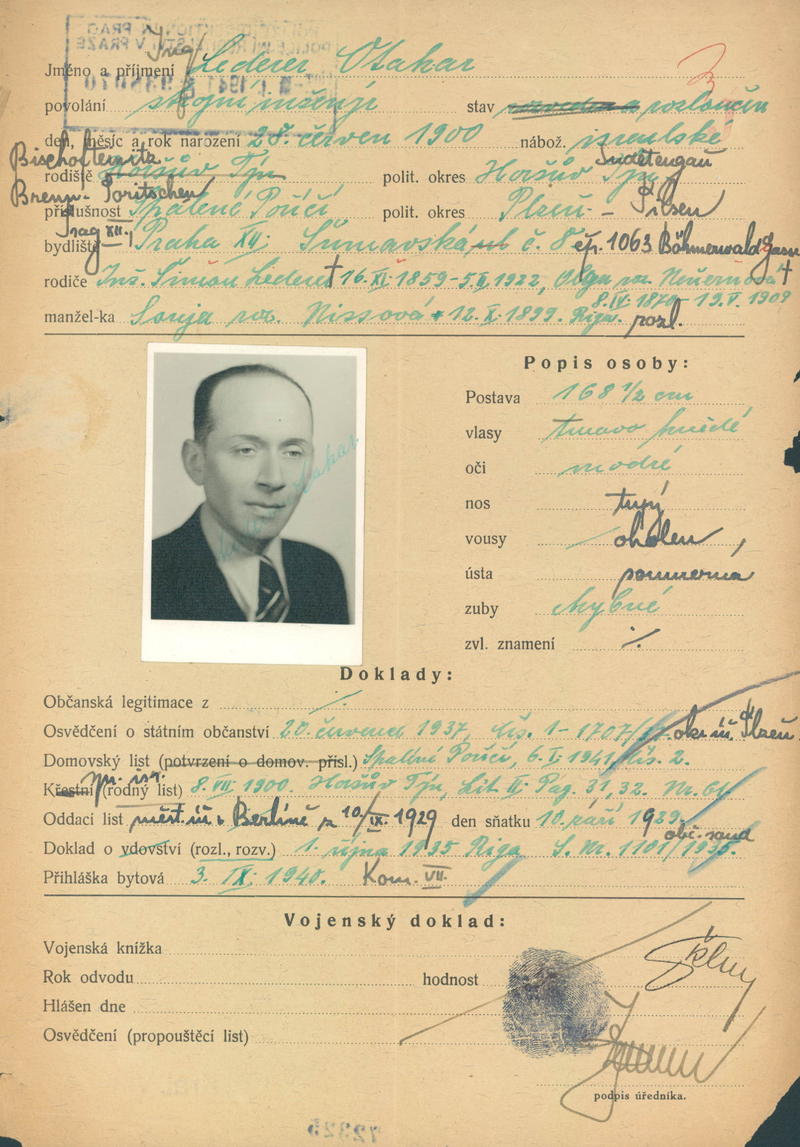 Ing.
Jméno a příjmení Lederer Otakar
povolání strojní inženýr stav rozveden rozloučen
den, měsíc a rok narození 28. červen 1900 nábož. israelské
Bischofteinitz Sudetengau
rodiště Horšův Týn polit. okres Horšův Týn
Brenn-Poritschen
příslušnost Spálené Poříčí polit. okres Plzeň – Pilsen
Prag XII.
bydliště Praha XII. Šumavská č. 8 čp. 1063 Böhmerwaldgasse
rodiče Ing. Šimon Lederer † 16. XI. 1859 - 5. II. 1922, Olga roz. Neuernová †
8. IV. 1870 - 19. V. 1909
manžel-ka Sonja roz. Nissová * 12. X. 1899. Riga. rozl.
Popis osoby:
Postava 168 1/2 cm
vlasy tmavo hnědé
oči modré
nos tupý
vousy oholen,
ústa poměrná
zuby chybné
zvl. znamení ·/.
Doklady:
Občanská legitimace z ·/.
Osvědčení o státním občanství 20. července 1937, čís. 1-1707/ okr. úř. Plzeň
Domovský list (potvrzení o domov. přísl.) Spálené Poříčí, 6. I. 1941, čís. 2.
Křestní (rodný list) 8. VII. 1900. Horšův Týn, Lit. II. Pag. 31, 32. Nr. 61
Oddací list měst. úř. v Berlíně z 10/IX. 1929 den sňatku 10. září 1929.
obč. soud
Doklad o vdovství (rozl., rozv.) 1. října 1935 Riga S. Nr. 1101/1935.
Přihláška bytová 3. IX. 1940. Kom. VII.
Vojenský doklad:
Vojenská knížka
Rok odvodu hodnost
Hlášen dne
Osvědčení (propouštěcí list)
podpis úředníka.
72325